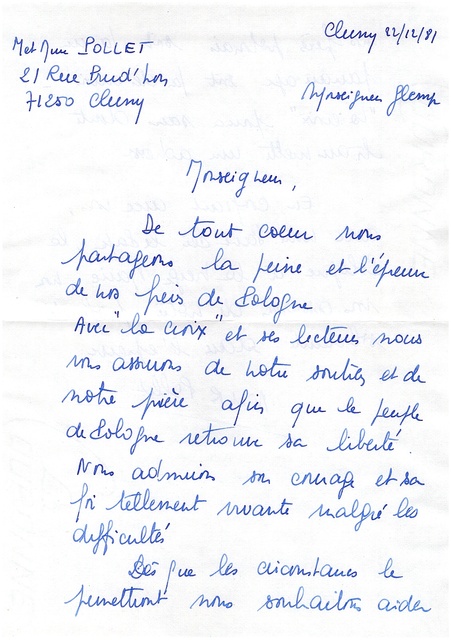 Cluny 22/12/81
M et Mme POLLET
21 Rue Prud'hon
71250 Cluny
Monseigneur Glemp
Monseigneur,
De tout coeur nous
partageons la peine et l'épreuve
de nos frères de Pologne
Avec "la croix" et ses lecteurs nous
vous assurons de notre soutien et de
notre prière afin que le peuple
de Pologne retrouve sa liberté.
Nous admirons son courage et sa
foi tellement vivante malgré les
difficultés
Dès que les circonstances le
permettront nous souhaitons aider